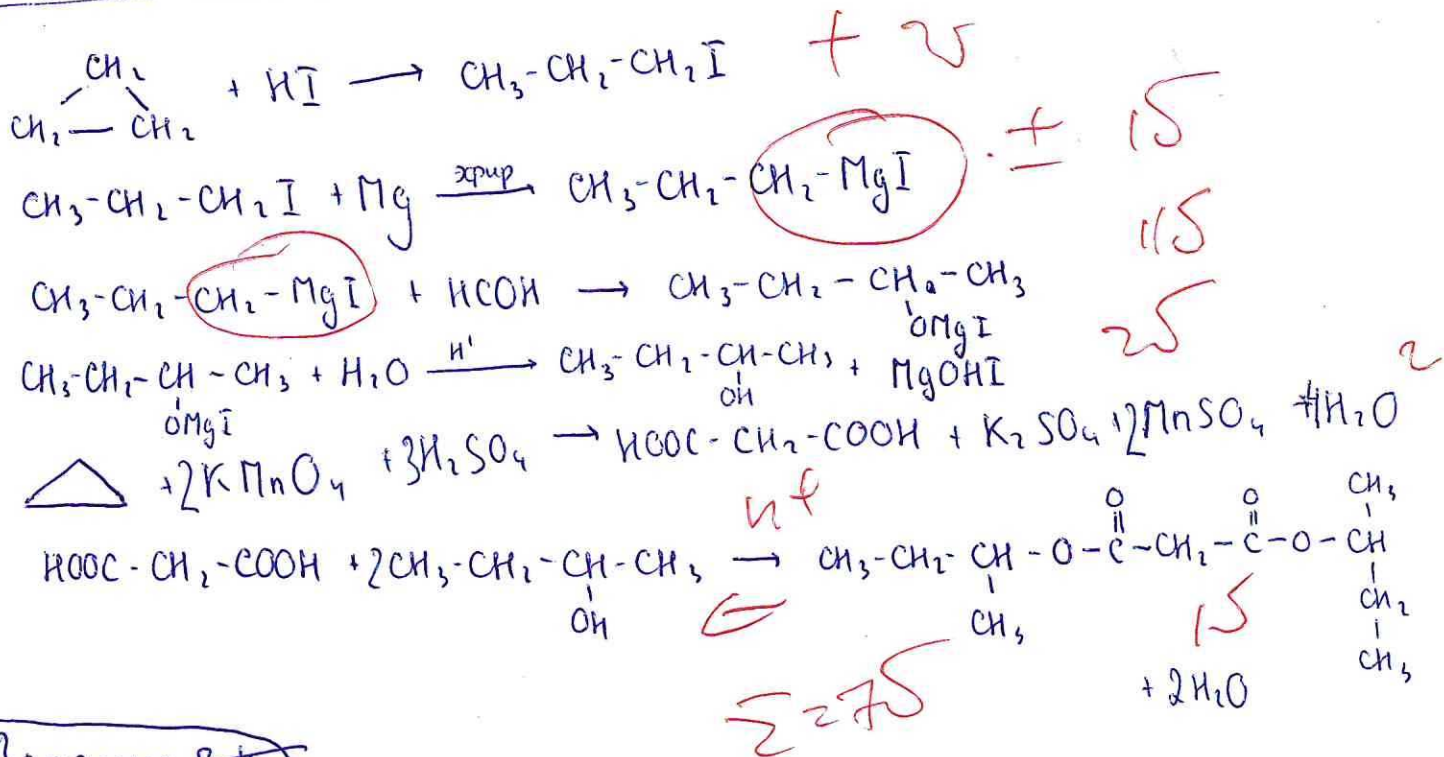 CH₂
CH₂ — CH₂ + HI → CH₃-CH₂-CH₂I + 2б
CH₃-CH₂-CH₂I + Mg эфир→ CH₃-CH₂-CH₂-MgI ± 1б
1б
CH₃-CH₂-CH₂-MgI + HCOH → CH₃-CH₂-CH-CH₃
OMgI
2б
CH₃-CH₂-CH-CH₃ + H₂O H⁺→ CH₃-CH₂-CH-CH₃ + MgOHI
OMgI OH
+2KMnO₄ +3H₂SO₄ → HOOC-CH₂-COOH + K₂SO₄ + 2MnSO₄ + 4H₂O
H⁺
HOOC-CH₂-COOH + 2CH₃-CH₂-CH-CH₃ → CH₃-CH₂-CH-O-C-CH₂-C-O-CH
O O CH₃
OH CH₃ CH₂
1б CH₃
+ 2H₂O
Σ=7б